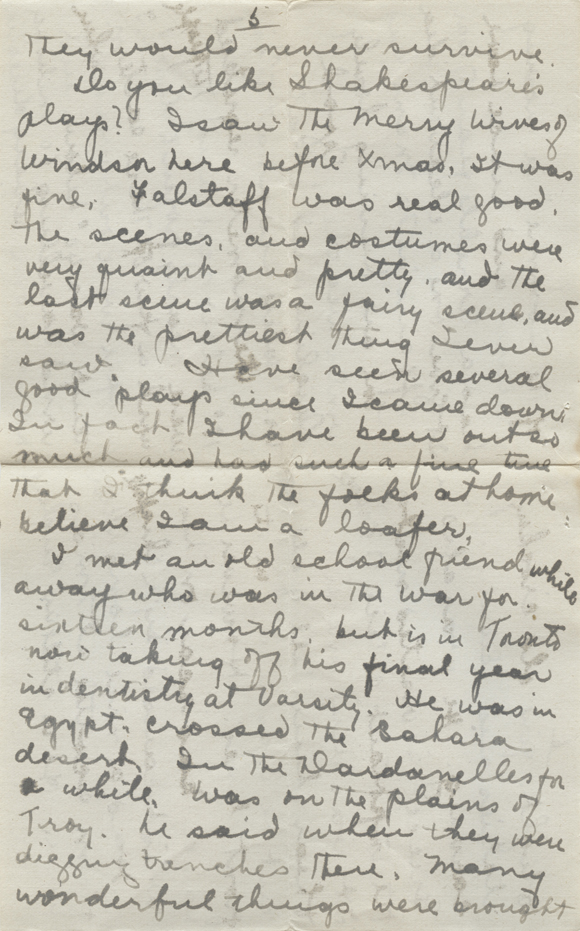 5
They would never survive.
Do you like Shakespeare's
plays? I saw The Merry Wives of
Windsor here before Xmas. It was
fine. Falstaff was real good.
The scenes, and costumes were
very quaint and pretty, and the
last scene was a fairy scene, and
was the prettiest thing I ever
saw. Have seen several
good plays since I came down.
In fact I have been out so
much and had such a fine time
that I think the folks at home
believe I am a loafer.
I met an old school friend while
away who was in the war for
sixteen months, but is in Tronto
now taking off his final year
in dentistry at Varsity. He was in
Egypt, crossed the Sahara
desert. In the Dardanelles for
a while, was on the plains of
Troy. he said when they were
digging trenches there, many
wonderful things were brought